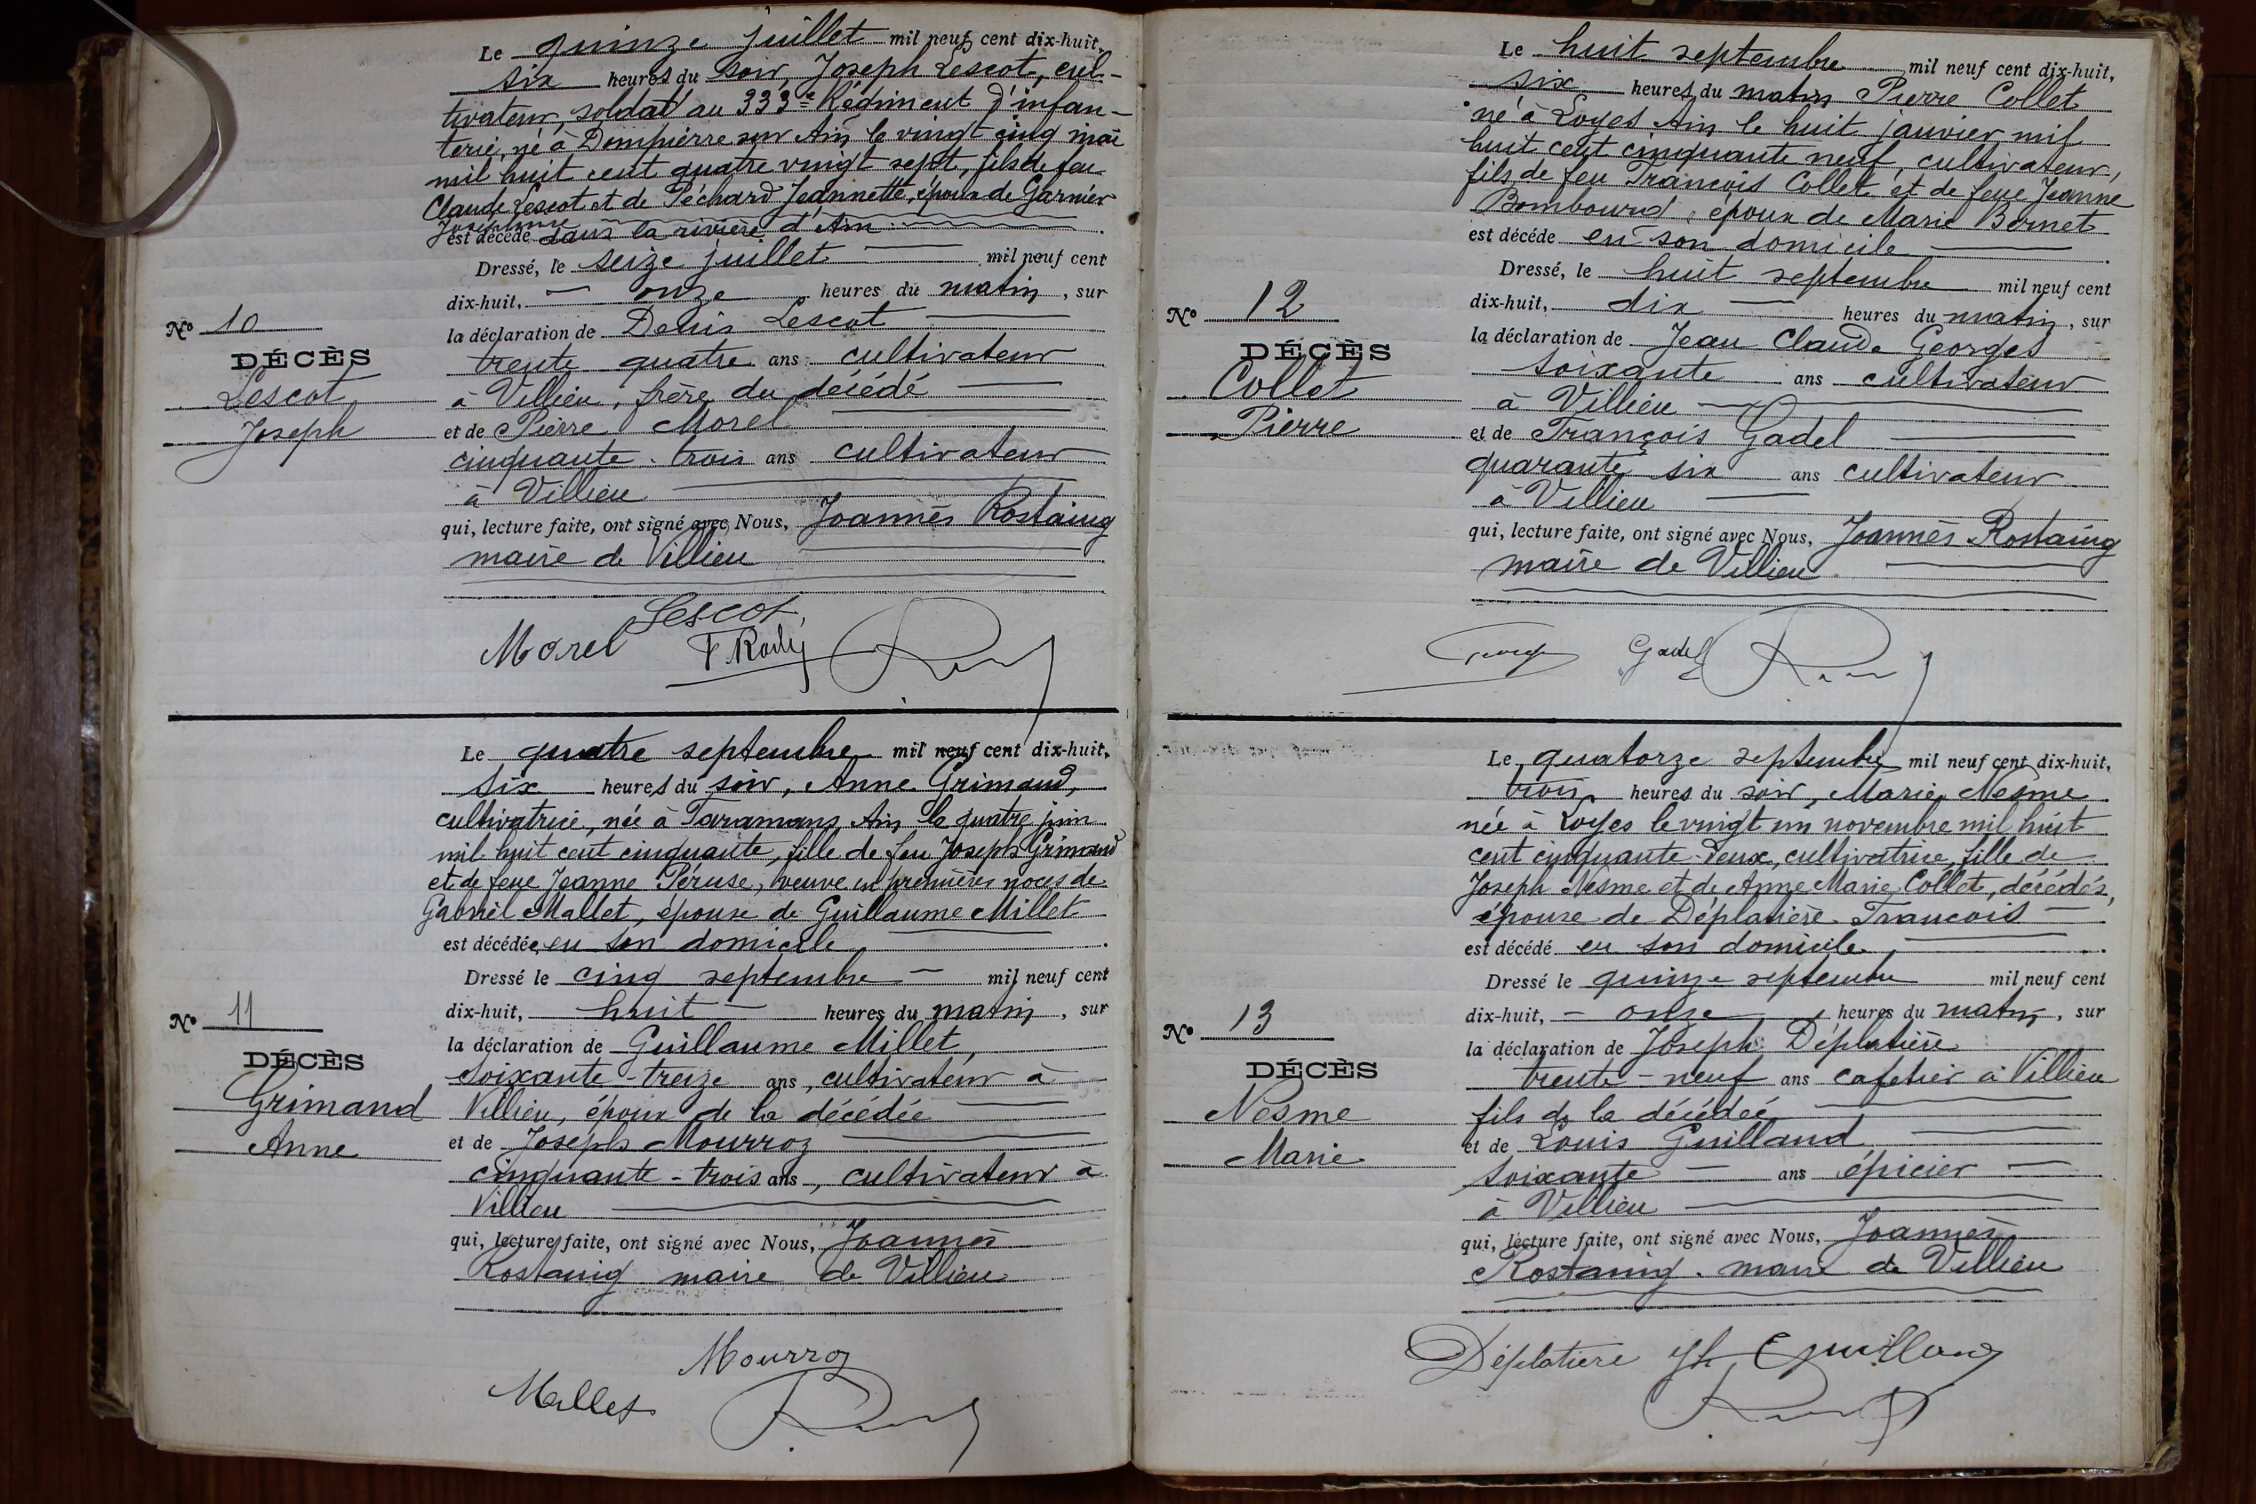 Le quinze juillet mil neuf cent dix-huit,
six heures du soir, Joseph Lescot, cul-
tivateur, soldat au 333e Régiment d'infan-
terie, né à Dompierre sur Ain, le vingt cinq mai
mil huit cent quatre vingt sept, fils de feu
Claude Lescot et de Péchard Jeannette, époux de Garnier
Joséphine
est décédé dans la rivière d'Ain
Dressé, le seize juillet mil neuf cent
dix-huit, onze heures du matin, sur
la déclaration de Denis Lescot
trente quatre ans cultivateur
à Villieu, frère du décédé
et de Pierre Morel
cinquante-trois ans cultivateur
à Villieu
qui, lecture faite, ont signé avec Nous, Joannès Rostaing
maire de Villieu
No 10
DÉCÈS
Lescot
Joseph
Lescot
Morel
Le quatre septembre mil neuf cent dix-huit,
six heures du soir, Anne Grimand,
cultivatrice, née à Faramans, Ain le quatre juin
mil huit cent cinquante, fille de feu Joseph Grimand
et de feue Jeanne Péruse, veuve en premières noces de
Gabriel Mallet, épouse de Guillaume Millet
est décédée, en son domicile
Dressé le cinq septembre mil neuf cent
dix-huit, huit heures du matin, sur
la déclaration de Guillaume Millet,
soixante-treize ans, cultivateur à
Villieu, époux de la décédée
et de Joseph Mourroz
cinquante-trois ans, cultivateur à
Villieu
qui, lecture faite, ont signé avec Nous, Joannès
Rostaing maire de Villieu
No 11
DÉCÈS
Grimand
Anne
Mourroz
Millet
Le huit septembre mil neuf cent dix-huit,
six heures du matin Pierre Collet
né à Loyes Ain le huit janvier mil
huit cent cinquante neuf, cultivateur,
fils de feu François Collet et de feue Jeanne
Bombourd, époux de Marie Bernet
est décédé en son domicile
Dressé, le huit septembre mil neuf cent
dix-huit, dix heures du matin, sur
la déclaration de Jean Claude Georges
soixante ans cultivateur
à Villieu
et de François Gadel
quarante six ans cultivateur
à Villieu
qui, lecture faite, ont signé avec Nous, Joannès Rostaing
maire de Villieu
No 12
DÉCÈS
Collet
Pierre
Gadel
Le quatorze septembre mil neuf cent dix-huit,
trois heures du soir, Marie Nesme
née à Loyes le vingt un novembre mil huit
cent cinquante-deux, cultivatrice, fille de
Joseph Nesme et de Anne Marie Collet, décédés,
épouse de Déplatière François
est décédé en son domicile
Dressé le quinze septembre mil neuf cent
dix-huit, onze heures du matin, sur
la déclaration de Joseph Déplatière
trente-neuf ans cafetier à Villieu
fils de la décédée
et de Louis Guilland
soixante ans épicier
à Villieu
qui, lecture faite, ont signé avec Nous, Joannès
Rostaing. maire de Villieu
No 13
DÉCÈS
Nesme
Marie
Déplatiere Jh Guilland